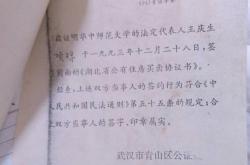 兹证明华中师范大学的法定代表人王庆生
于一九九三年十二月二十八日，签
《湖北省公有住房买卖协议书》。
经查，上述双方当事人的签约行为符合《中
人民共和国民法通则》第五十五条的规定；合
上双方当事人的签字、印章属实。
武汉市青山区公证